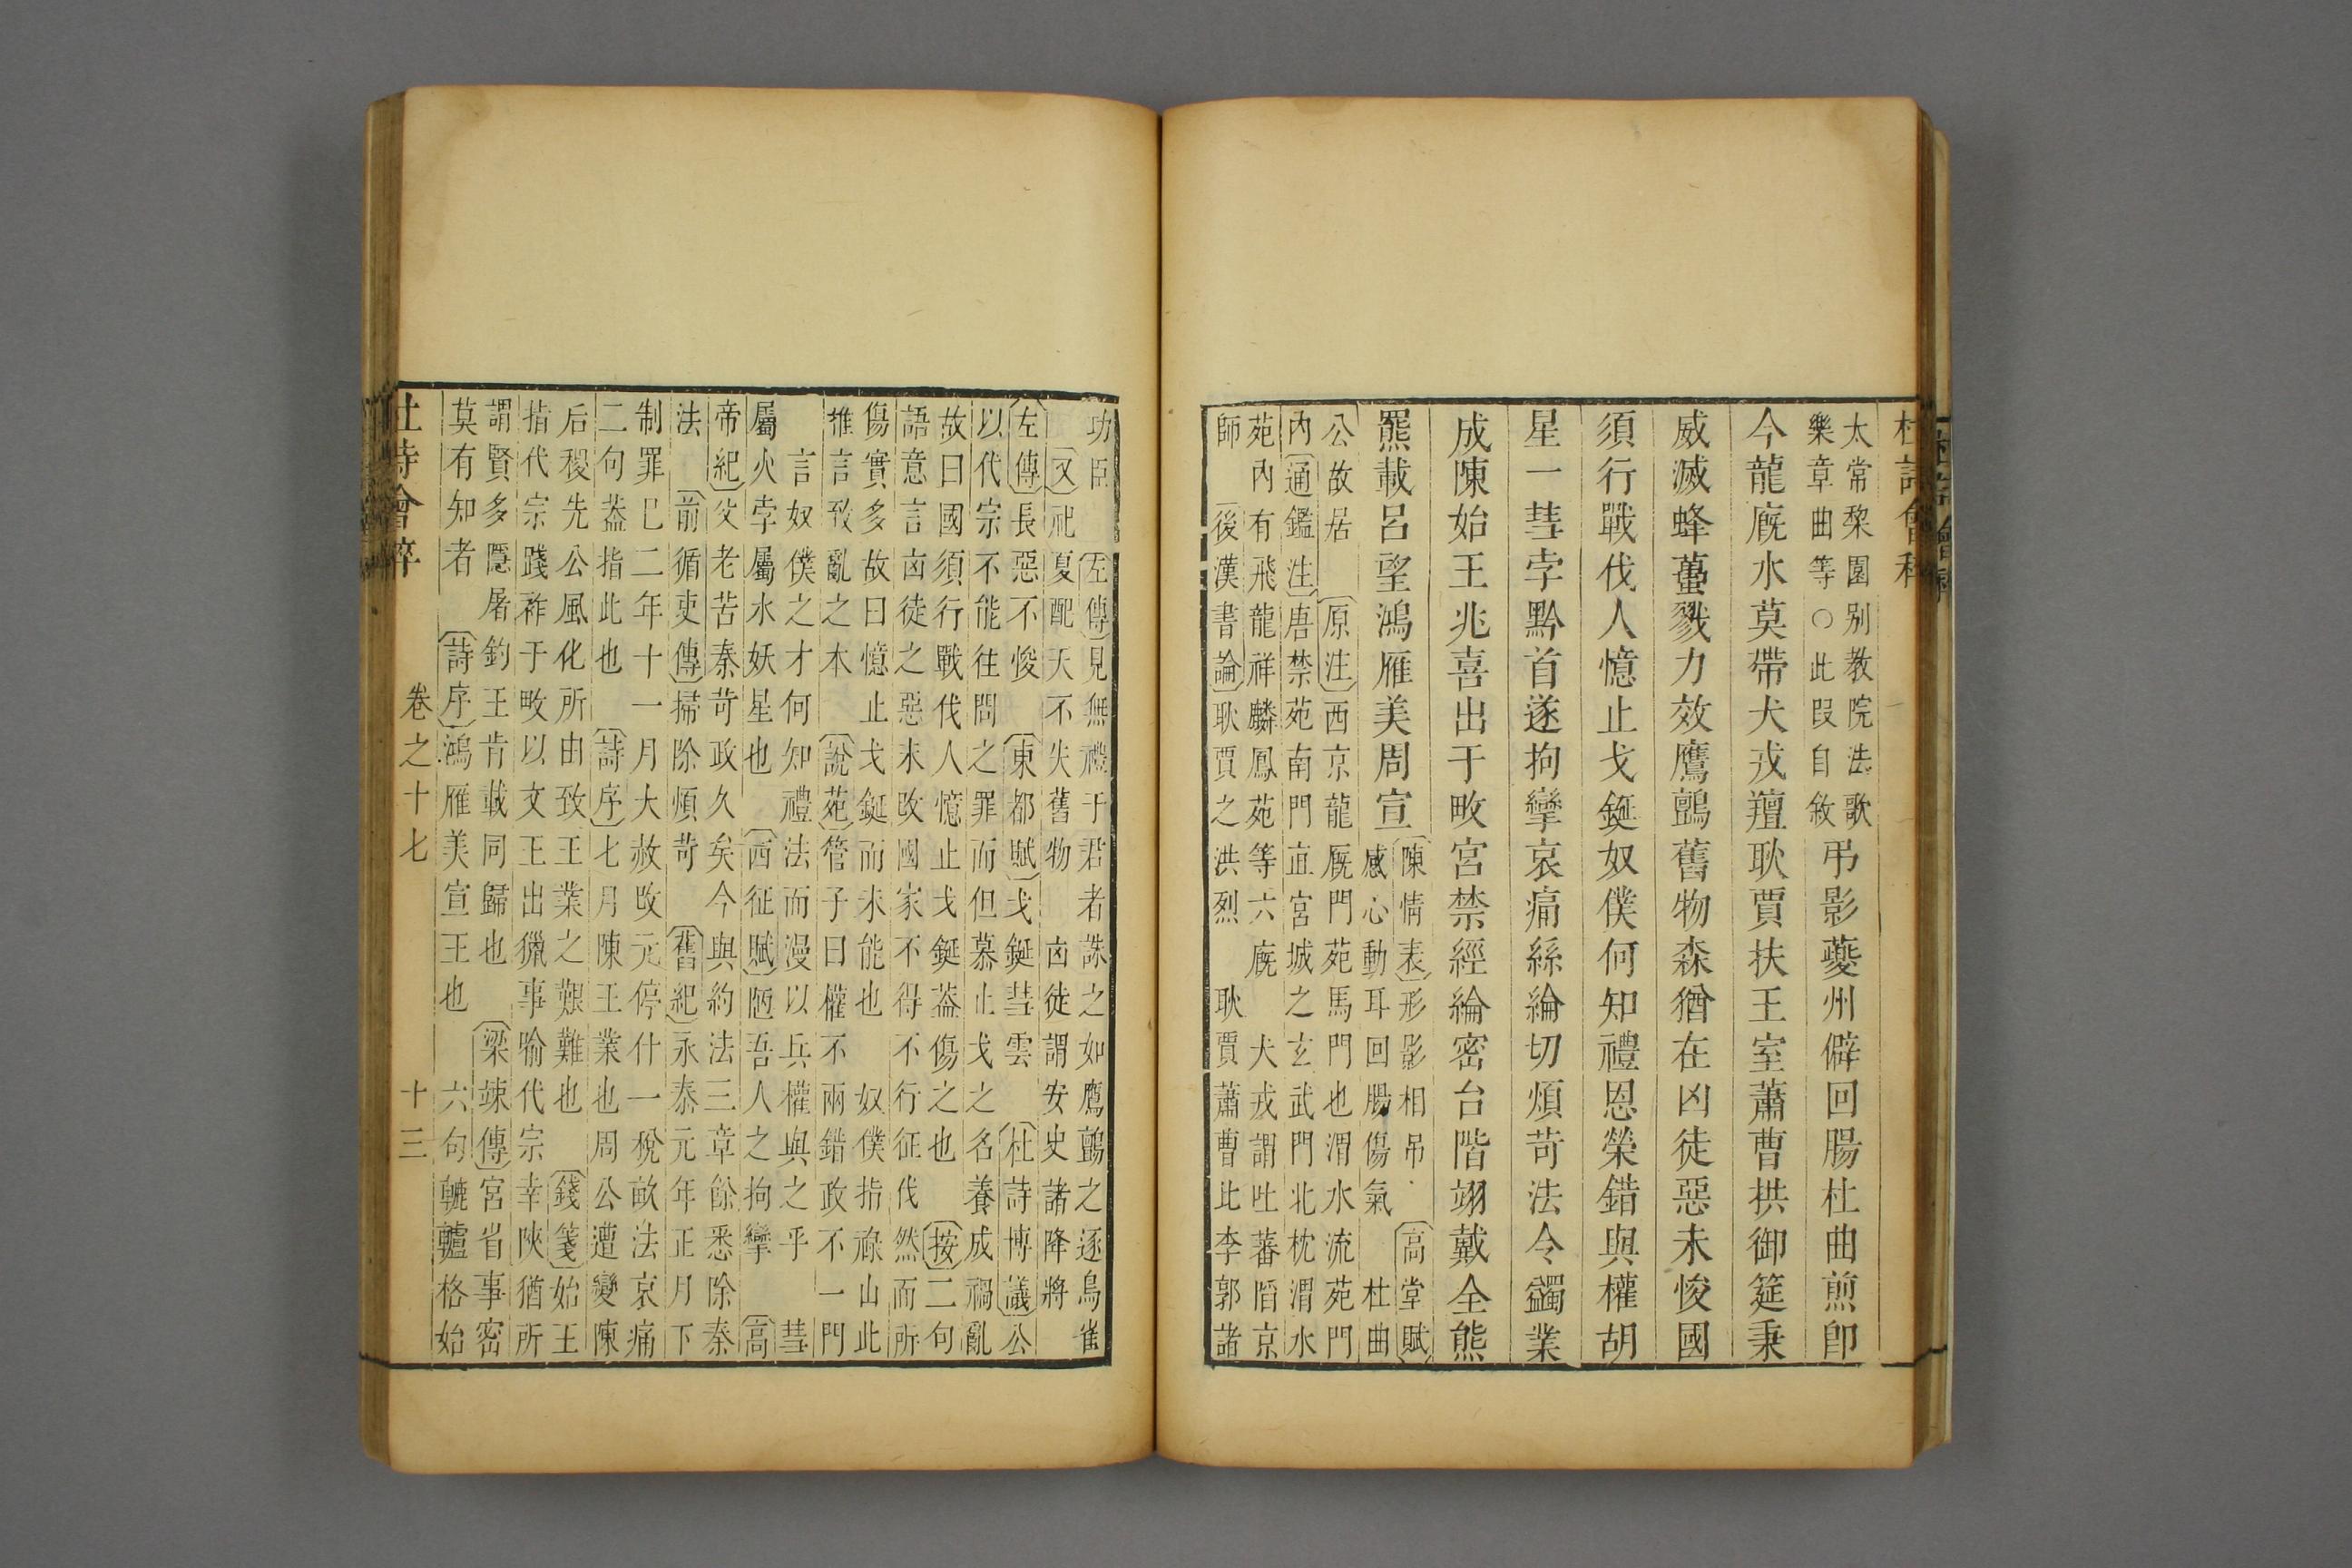 杜詩會稡
太常棃園别教院法歌
樂章曲等○此叚自敘
弔影夔州僻回腸杜曲煎卽
今龍廐水莫帶犬戎羶耿賈扶王室蕭曹拱御筵秉
威滅蜂蠆戮力效鷹鸇舊物森猶在凶徒惡未悛國
須行戰伐人憶止戈鋋奴僕何知禮恩榮錯與權胡
星一彗孛黔首遂拘攣哀痛絲綸切煩苛法令蠲業
成陳始王兆喜出于畋宮禁經綸密台階翊戴全熊
羆載呂望鴻雁美周宣
陳情表形影相吊 高堂賦
感心動耳回腸傷氣 杜曲
公故居 原注西京龍厩門苑馬門也渭水流苑門
內通鑑注唐禁苑南門直宮城之玄武門北枕渭水
苑內有飛龍祥麟鳳苑等六廐 犬戎謂吐蕃䧟京
師 後漢書論耿賈之洪烈 耿賈蕭曹比李郭諸
功臣 左傳見無禮于君者誅之如鷹鸇之逐鳥雀
又祀夏配天不失舊物 凶徒謂安史諸降將
左傳長惡不悛 東都賦戈鋋彗雲 杜詩博議公
以代宗不能往問之罪而但慕止戈之名養成禍亂
故曰國須行戰伐人憶止戈鋋葢傷之也 按二句
語意言凶徒之惡未改國家不得不行征伐然而所
傷實多故曰憶止戈鋋而未能也 奴僕指祿山此
推言致亂之本 說苑管子曰權不兩錯政不一門
言奴僕之才何知禮法而漫以兵權與之乎 彗
屬火孛屬水妖星也 西征賦陋吾人之拘攣 高
帝紀父老苦秦苛政久矣今與約法三章餘悉除秦
法 前循吏傳掃除煩苛 舊紀永泰元年正月下
制罪已二年十一月大赦改元停什一稅畝法哀痛
二句葢指此也 詩序七月陳王業也周公遭變陳
后稷先公風化所由致王業之艱難也 錢箋始王
指代宗踐祚于畋以文王出獵事喻代宗幸陝猶所
謂賢多隱屠釣王肯載同歸也 梁竦傳宮省事密
莫有知者 詩序鴻雁美宣王也 六句轆轤格始
杜詩會稡 卷之十七 十三